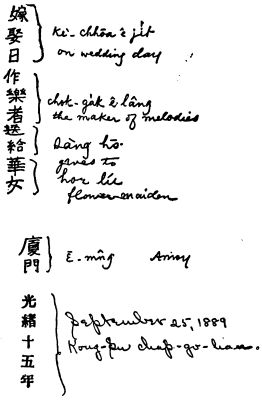 嫁娶日
kè-chhōa ê ji̍t
on wedding day
作樂者
chok-ga̍k ê lâng
the maker of melodies
送給
Sàng hō͘
gives to
華女
hoa lú
flower maiden
廈門
E-mn̂g Amoy
光緒十五年
September 25, 1889
Kong-su chap-go-lian.